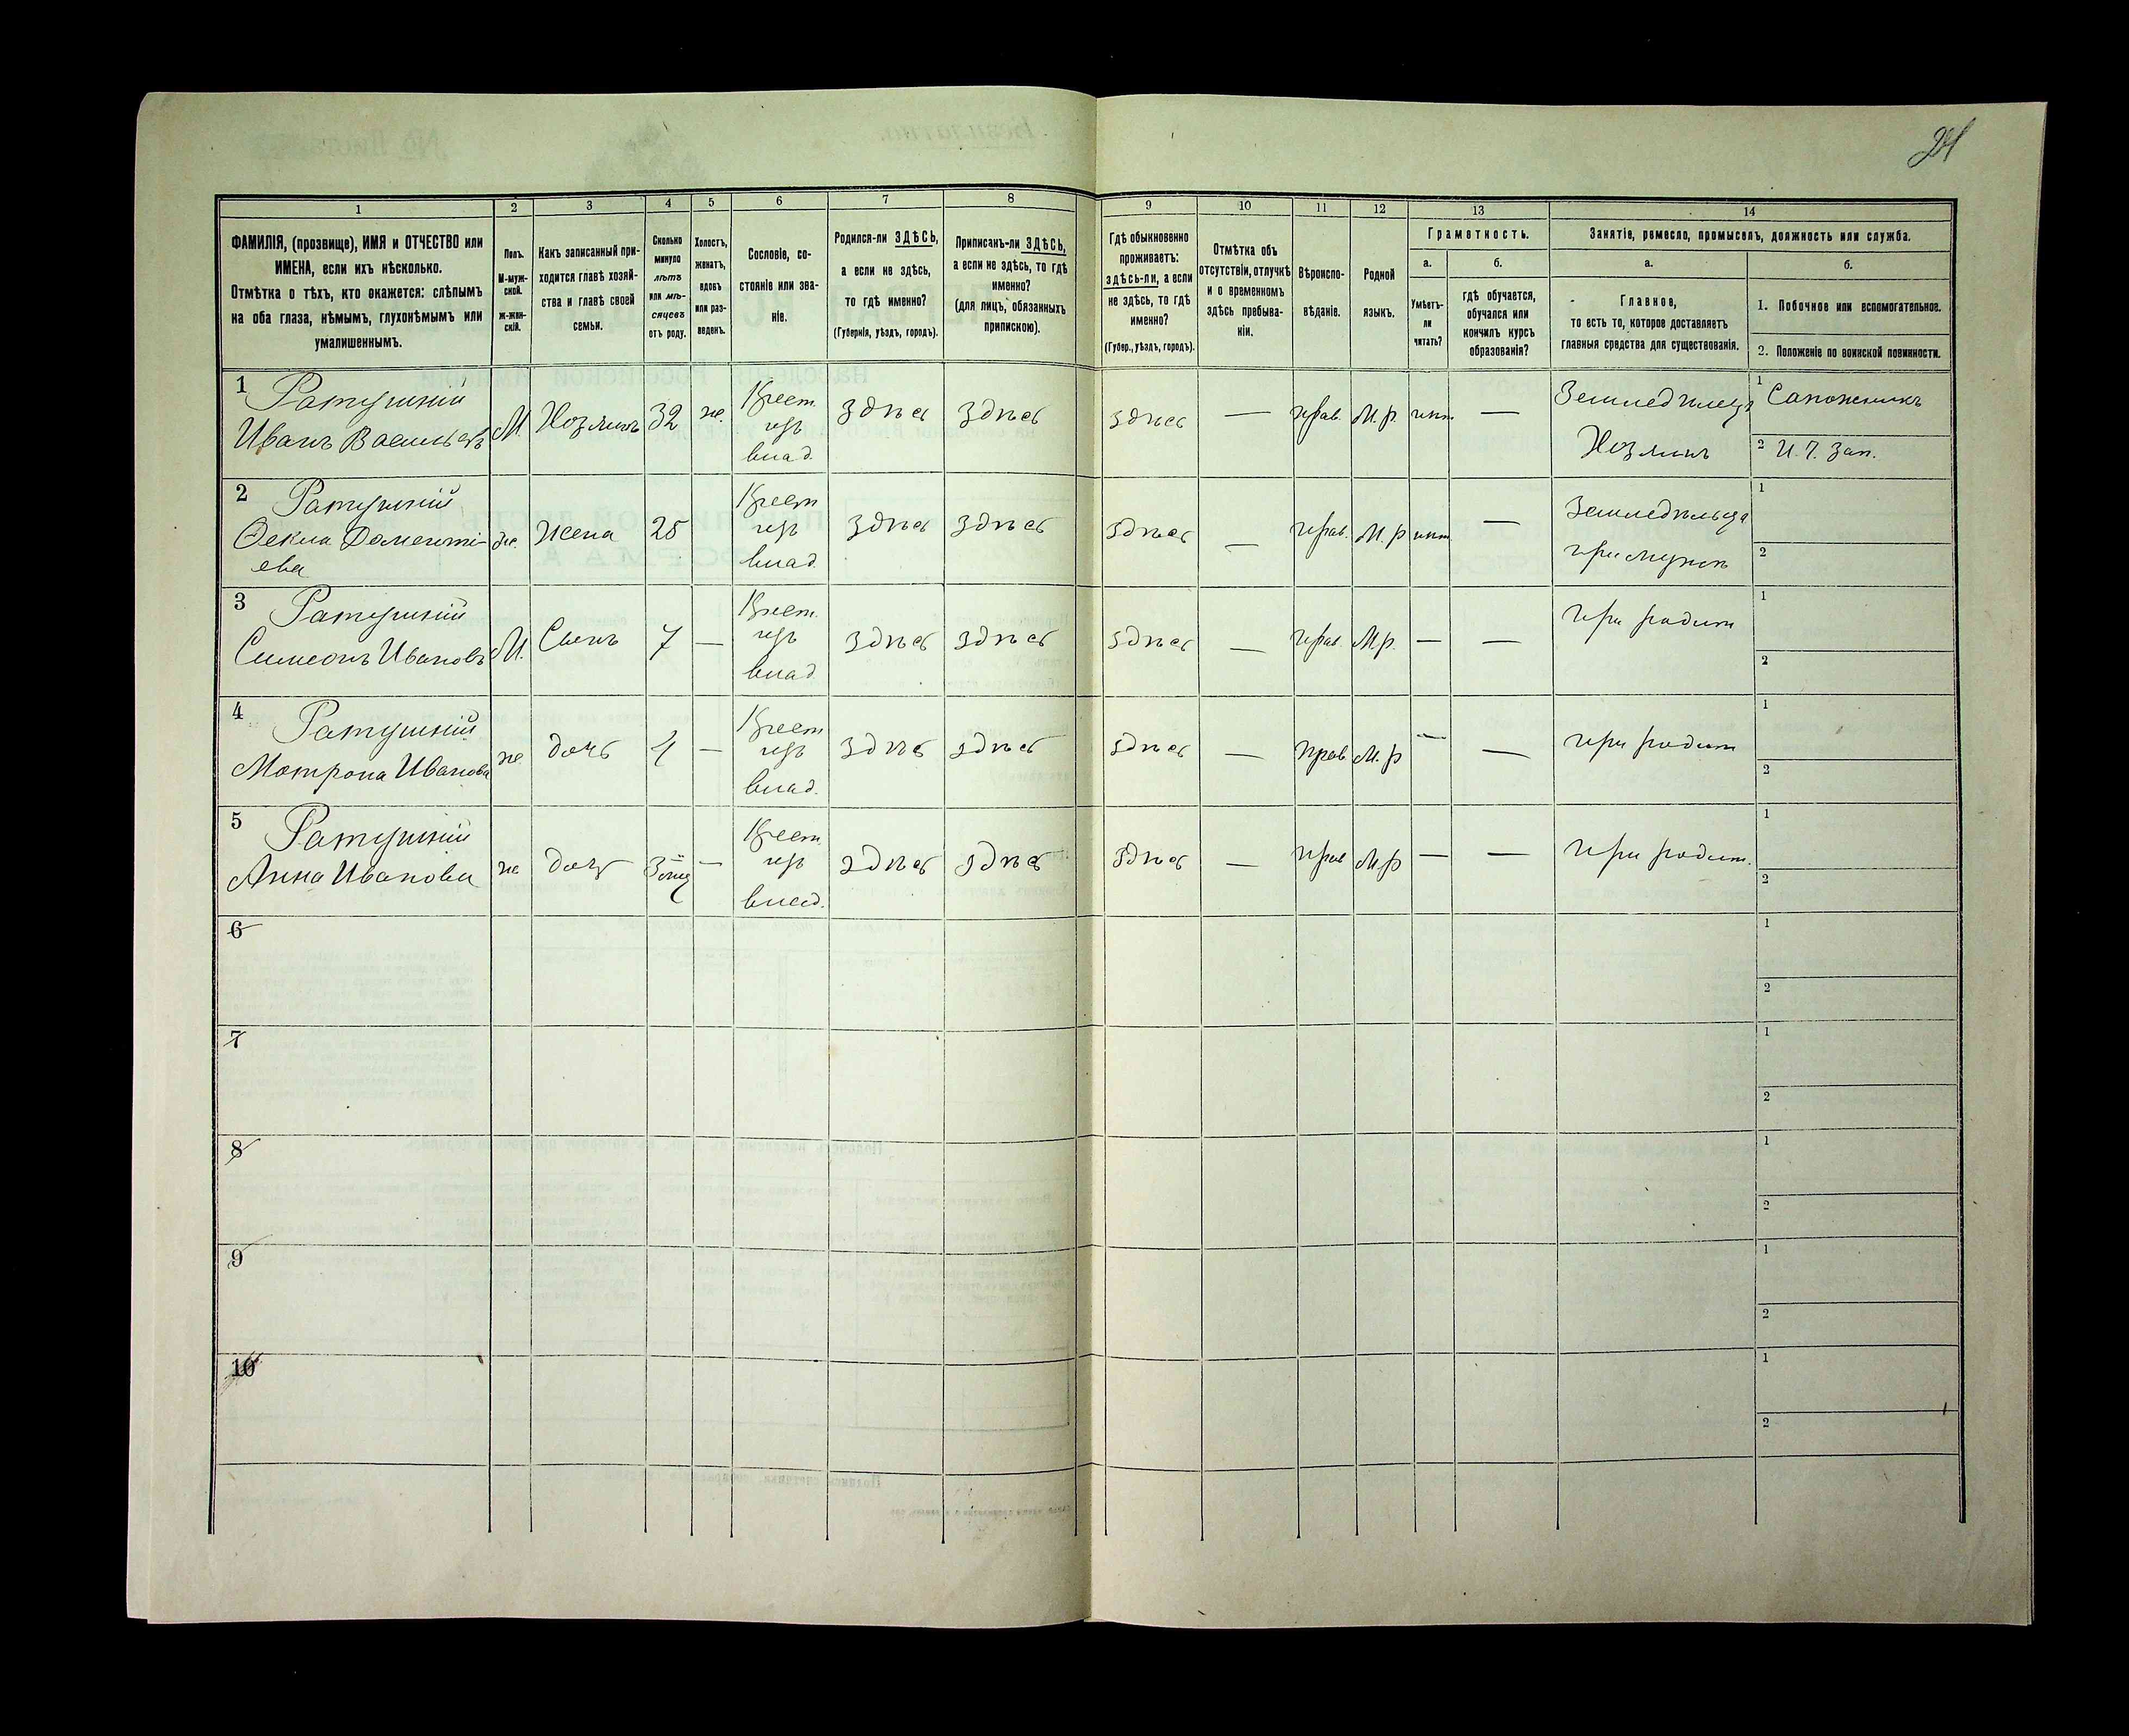 1 2 3 4 5 6 7 8 9 10 11 12 13 14
ФАМИЛІЯ, (прозвище), ИМЯ и ОТЧЕСТВО или
ИМЕНА, если ихъ нѣсколько.
Отмѣтка о тѣхъ, кто окажется: слѣпымъ
на оба глаза, нѣмымъ, глухонѣмымъ или
умалишеннымъ.
Полъ.
М-муж-
ской.
ж-жен-
скій.
Какъ записанный при-
ходится главѣ хозяй-
ства и главѣ своей
семьи.
Сколько
минуло
лѣтъ
или мѣ-
сяцевъ
отъ роду.
Холостъ,
женатъ,
вдовъ
или раз-
веденъ.
Сословіе, со-
стояніе или зва-
ніе.
Родился-ли ЗДѢСЬ,
а если не здѣсь,
то гдѣ именно?
(Губернія, уѣздъ, городъ).
Приписанъ-ли ЗДѢСЬ,
а если не здѣсь, то гдѣ
именно?
(для лицъ, обязанныхъ
припискою).
Гдѣ обыкновенно
проживаетъ:
здѣсь-ли, а если
не здѣсь, то гдѣ
именно?
(Губер., уѣздъ, городъ).
Отмѣтка объ
отсутствіи, отлучкѣ
и о временномъ
здѣсь пребыва-
ніи.
Вѣроиспо-
вѣданіе.
Родной
языкъ.
Грамотность.
а. б.
Умѣетъ-
ли
читать?
гдѣ обучается,
обучался или
кончилъ курсъ
образованія?
Занятіе, ремесло, промыселъ, должность или служба.
а. б.
Главное,
то есть то, которое доставляетъ
главныя средства для существованія.
1. Побочное или вспомогательное.
2. Положеніе по воинской повинности.
1
Иванъ Васильевъ
М. Хозяинъ 32 ж. Крест. изъ влад. здѣсь здѣсь здѣсь — прав. М. р. нѣт — Земледѣлецъ
Хозяинъ
1 Сапожникъ
2 И. Ч. Зап.
2
Ѳекла Доменті-
ева
ж. Жена Крест изъ влад. здѣсь здѣсь здѣсь — прав. М. р нѣт — Земледѣльца
при мужѣ
1
2
3
Симеонъ Ивановъ
М. Сынъ 7 — Крест. изъ влад здѣсь здѣсь здѣсь — прав. М. р. — — при родит
1
2
4
Мотрона Иванова
ж дочь — Крест изъ влад. здѣсь здѣсь здѣсь — прав. М. р — — при родит
1
2
5
Анна Иванова
ж дочь — Крест. изъ влад. здѣсь здѣсь здѣсь — прав М р — — при родит.
1
2
6
1
2
7
1
2
8
1
2
9
1
2
10
1
2